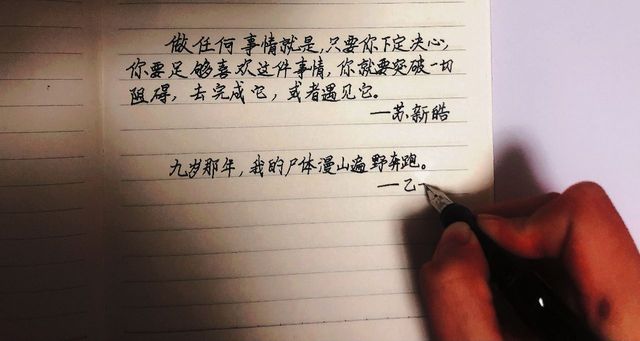 做任何事情就是,只要你下定决心,
你要足够喜欢这件事情,你就要突破一切
阻碍,去完成它,或者遇见它。
—苏新皓
九岁那年,我的尸体漫山遍野奔跑。
—乙一